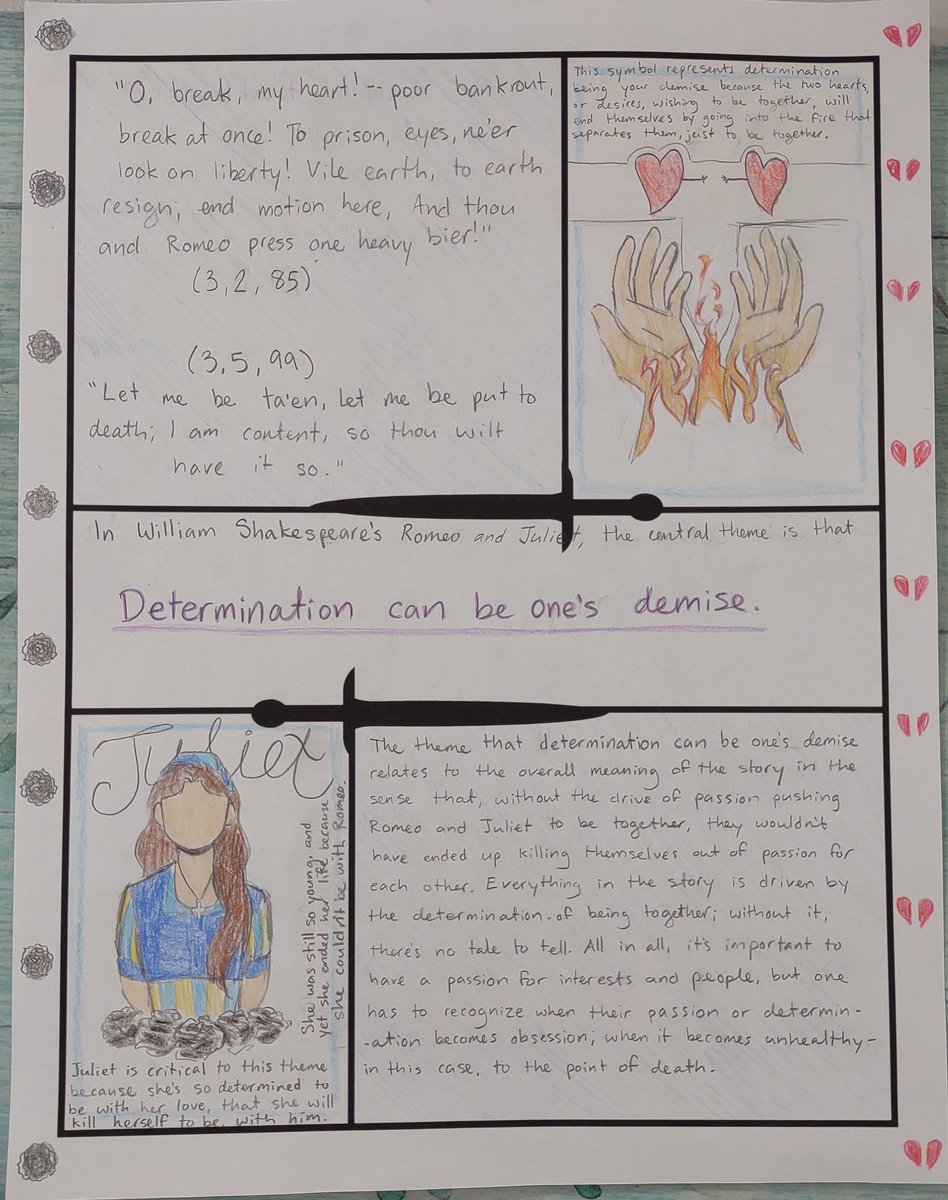 "O, break, my heart! -- poor bankrout,
break at once! To prison, eyes, ne'er
look on liberty! Vile earth, to earth
resign; end motion here, And thou
and Romeo press one heavy bier!"
(3,2,85)
(3,5,99)
"Let me be ta'en, let me be put to
death; I am content, so thou wilt
have it so."
This symbol represents determination
being your demise because the two hearts,
or desires, wishing to be together, will
end themselves by going into the fire that
separates them, just to be together.
In William Shakespeare's Romeo and Juliet, the central theme is that
Determination can be one's demise.
Juliet
She was still so young, and
yet she ended her life because
she couldn't be with Romeo.
Juliet is critical to this theme
because she's so determined to
be with her love, that she will
kill herself to be with him.
The theme that determination can be one's demise
relates to the overall meaning of the story in the
sense that, without the drive of passion pushing
Romeo and Juliet to be together, they wouldn't
have ended up killing themselves out of passion for
each other. Everything in the story is driven by
the determination of being together; without it,
there's no tale to tell. All in all, it's important to
have a passion for interests and people, but one
has to recognize when their passion or determin-
-ation becomes obsession; when it becomes unhealthy-
in this case, to the point of death.